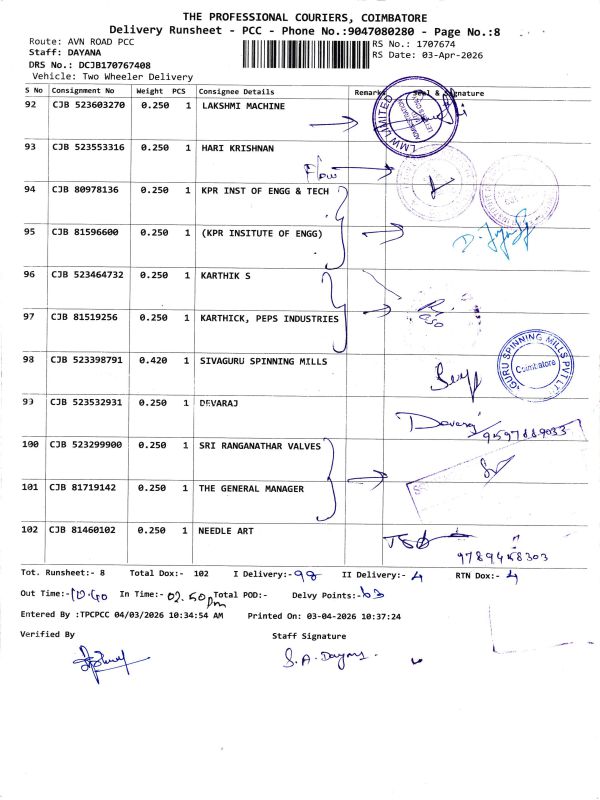 THE PROFESSIONAL COURIERS, COIMBATORE
Delivery Runsheet - PCC - Phone No.:9047080280 - Page No.:8
Route: AVN ROAD PCC RS No.: 1707674
Staff: DAYANA RS Date: 03-Apr-2026
DRS No.: DCJB170767408
Vehicle: Two Wheeler Delivery
S No Consignment No Weight PCS Consignee Details Remarks Seal & Signature
92 CJB 523603270 0.250 1 LAKSHMI MACHINE
LMW LIMITED
93 CJB 523553316 0.250 1 HARI KRISHNAN
94 CJB 80978136 0.250 1 KPR INST OF ENGG & TECH
95 CJB 81596600 0.250 1 (KPR INSITUTE OF ENGG)
96 CJB 523464732 0.250 1 KARTHIK S
97 CJB 81519256 0.250 1 KARTHICK, PEPS INDUSTRIES
98 CJB 523398791 0.420 1 SIVAGURU SPINNING MILLS
GURU SPINNING MILLS PVT LT
Coimbatore
99 CJB 523532931 0.250 1 DEVARAJ
Devaraj
9597889033
100 CJB 523299900 0.250 1 SRI RANGANATHAR VALVES
101 CJB 81719142 0.250 1 THE GENERAL MANAGER
102 CJB 81460102 0.250 1 NEEDLE ART
9789458303
Tot. Runsheet:- 8 Total Dox:- 102 I Delivery:- 98 II Delivery:- 4 RTN Dox:- 4
Out Time:- In Time:- 02.50pm Total POD:- Delvy Points:- 63
Entered By :TPCPCC 04/03/2026 10:34:54 AM Printed On: 03-04-2026 10:37:24
Verified By Staff Signature
S. A. Dayana